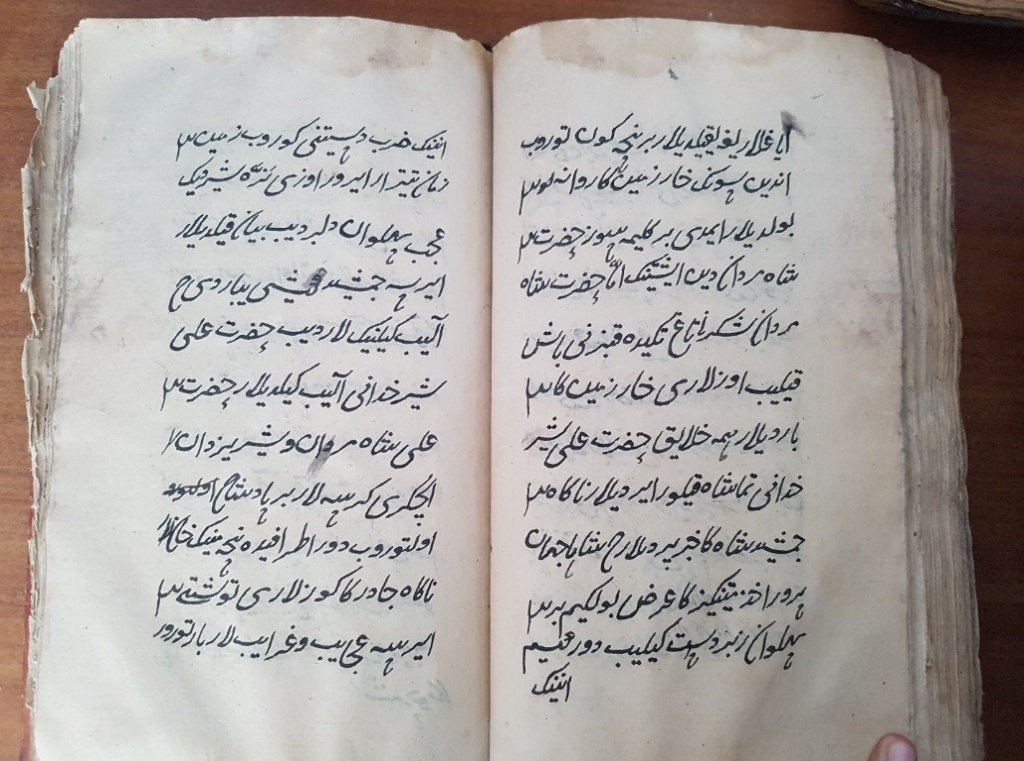 ایاغلاریغه ییقیلدیلار بر نچه کون توروب
اندین سونک خارزمین کا روانه
بولدیلار ایمدی بر کلیمه سوز حضرت
شاه مردان دین ایشتینک اما حضرت شاه
مردان تکیده قنبرنی باش
قیلیب اوزلاری خارزمین کا
باردیلار همه خلایق حضرت علی شیر
خدانی تماشاه قیلور ایردیلار ناکاه
جمشید شاه کا خبر بردیلار شاها جهان
پرور اخذمتنکیز کا عرض بولکیم بر
پهلوان زبردست کیلیب دورکیم
انینک
انینک ضرب دستنی کوروب زمین
زمان تیترار ایرور اوزی نره شیردیک
عجب پهلوان دلبر دیب بیان قیلدیلار
ایرسه جمشید کیشی یباردی
آلیب کیلینک لار دیب حضرت علی
شیر خدانی آلیب کیلدیلار حضرت
علی شاه مردان و شیر یزدان
ایچکری کرسه لار بر پادشاه
اولتوروب دور اطرافیده نچه مینک
ناکاه چادرکا کوزلاری توشتی
ایرسه عجایب و غرایب لار بار تورور